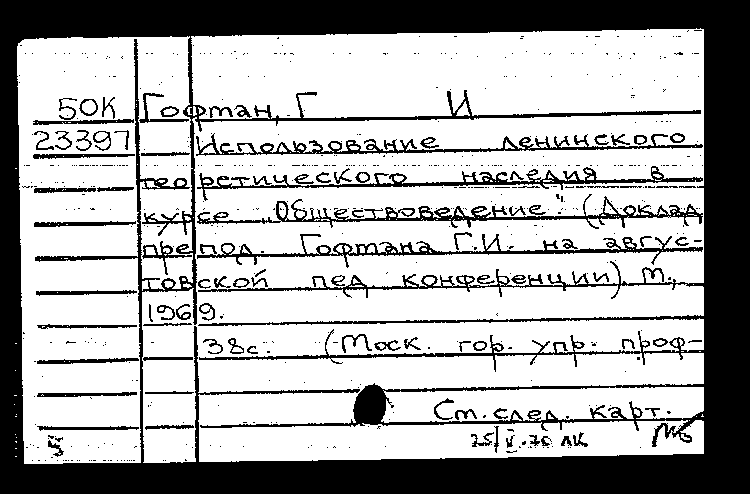 50К Гофман, Г И
23397 Использование ленинского
теоретического наследия в
курсе „Обществоведение". (Доклад
препод. Гофмана Г.И. на авгус-
товской пед конференции). М.,
1969.
38с. (Моск. гор. упр. проф-
Ст. след. карт.
25/V.70 ЛК